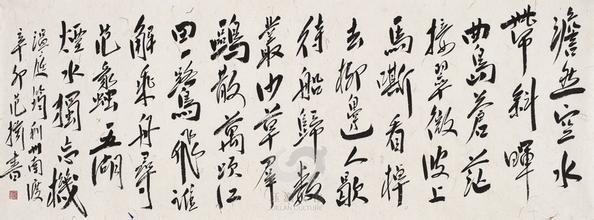 澹然空水
帶斜暉
曲島蒼茫
接翠微波上
馬嘶看棹
去柳邊人歇
待船歸數
叢沙草羣
鷗散萬頃江
田一鷺飛誰
解乘舟尋
范蠡五湖
煙水獨忘機
溫庭筠利州南渡
辛卯范揚書